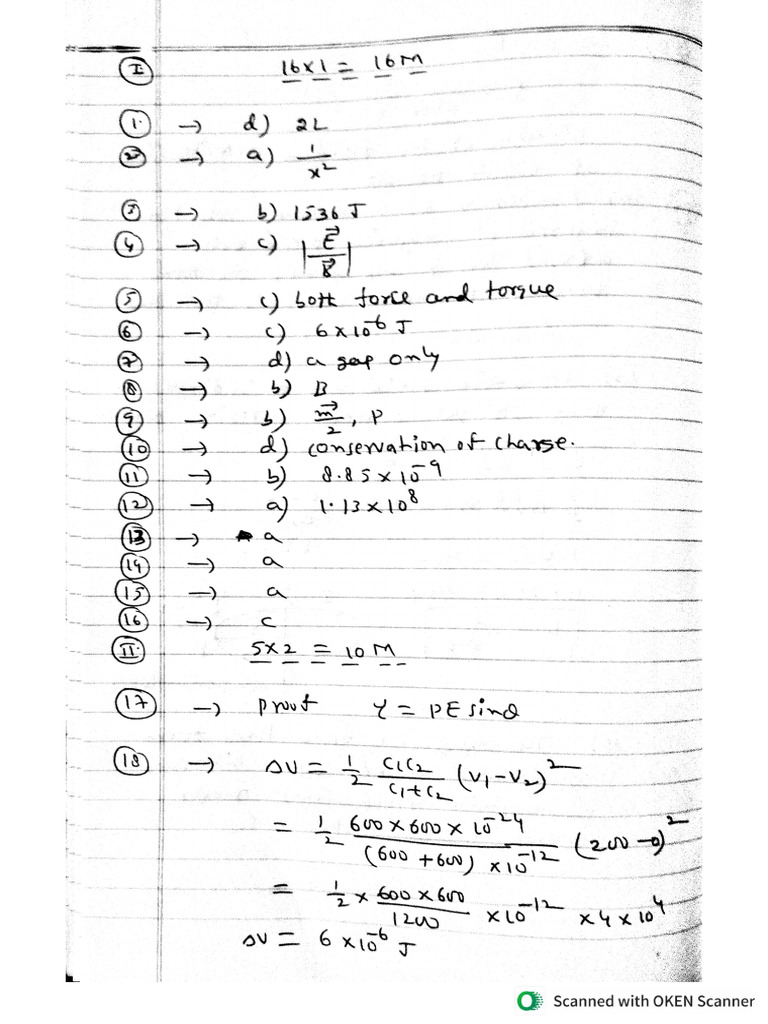 I 16×1 = 16M
1. → d) 2L
2. → a) 1/x²
3 → b) 1536 J
4 → c) |E⃗/B⃗|
5 → c) both force and torque
6 → c) 6×10⁻⁶ J
7 → d) a gap only
8 → b) B
9 → b) m⃗/2, P
10 → d) conservation of charge.
11 → b) 8.85×10⁻⁹
12 → a) 1.13×10⁸
13 → a
14 → a
15 → a
16 → c
II 5×2 = 10 M
17 → proof τ = PE sinθ
18 → ΔU = 1/2 C₁C₂/C₁+C₂ (V₁-V₂)²
= 1/2 600×600×10⁻²⁴/(600+600)×10⁻¹² (200-0)²
= 1/2 × 600×600/1200 ×10⁻¹² ×4×10⁴
ΔU = 6×10⁻⁶ J
Scanned with OKEN Scanner